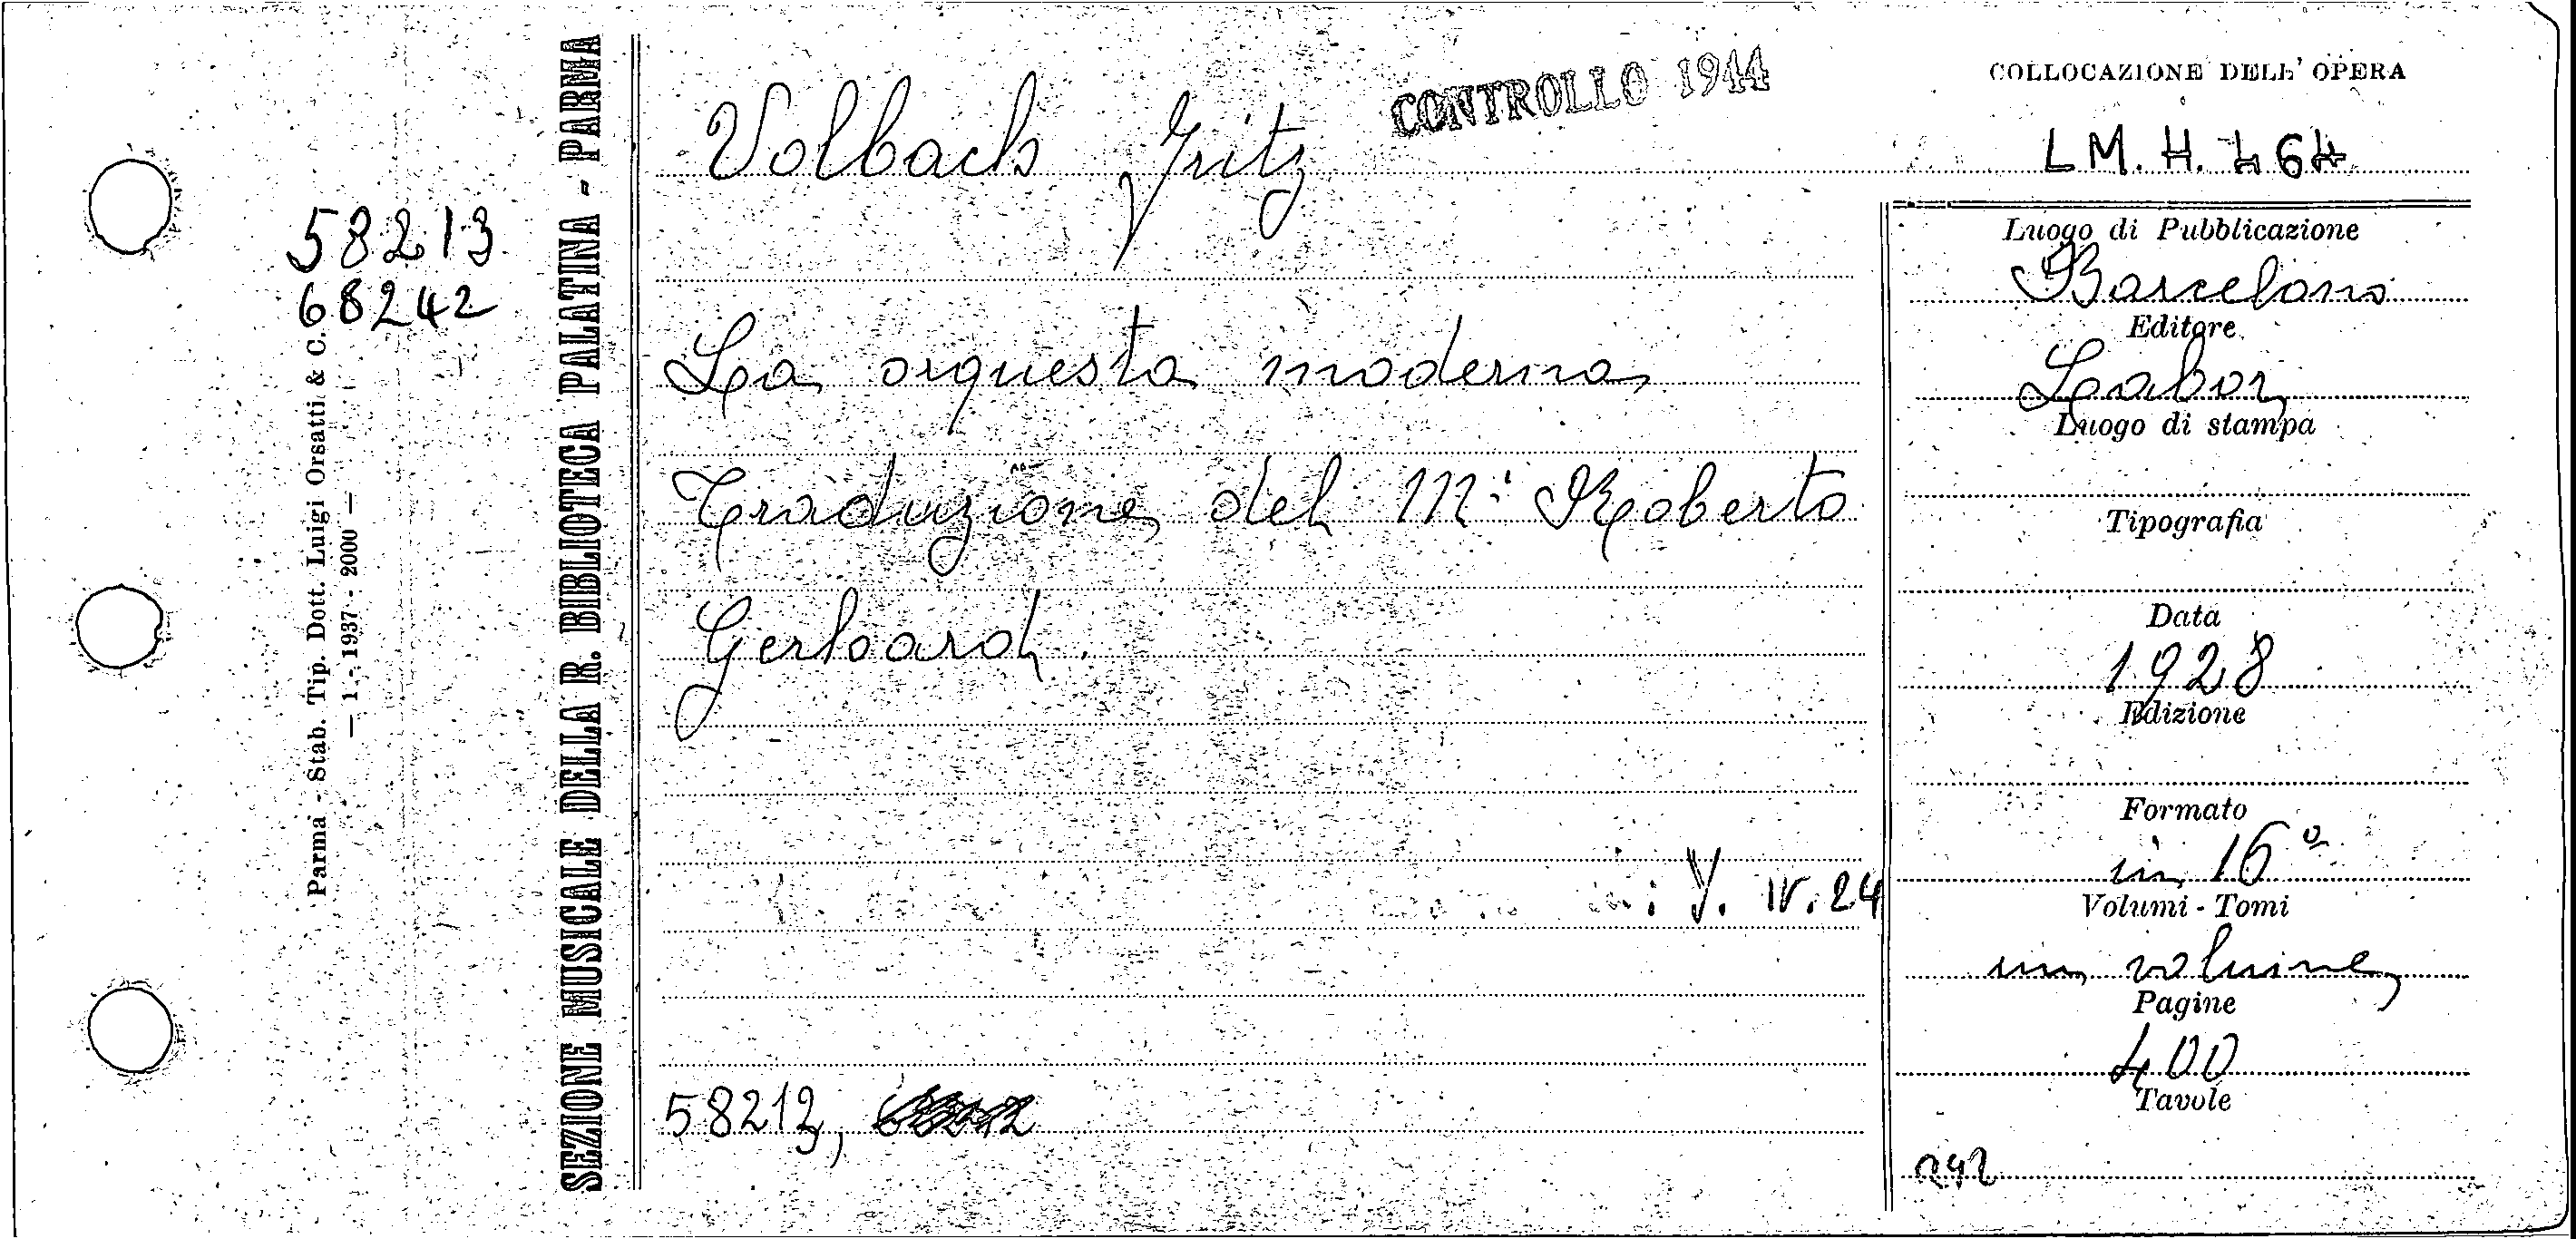 58213
68242
Parma - Stab. Tip. Dott. Luigi Orsatti & C.
— 1 - 1937 - 2000 —
SEZIONE MUSICALE DELLA R. BIBLIOTECA PALATINA - PARMA
Volbach Fritz
CONTROLLO 1944
La orquesta moderna
Traduzione del M: Roberto
Gerhard.
: Y. IV. 24
58213,
COLLOCAZIONE DELL' OPERA
LM. H. 464
Luogo di Pubblicazione
Barcelona
Editore
Labor
Luogo di stampa
Tipografia
Data
1928
Edizione
Formato
in 16º
Volumi - Tomi
un volume
Pagine
400
Tavole
242